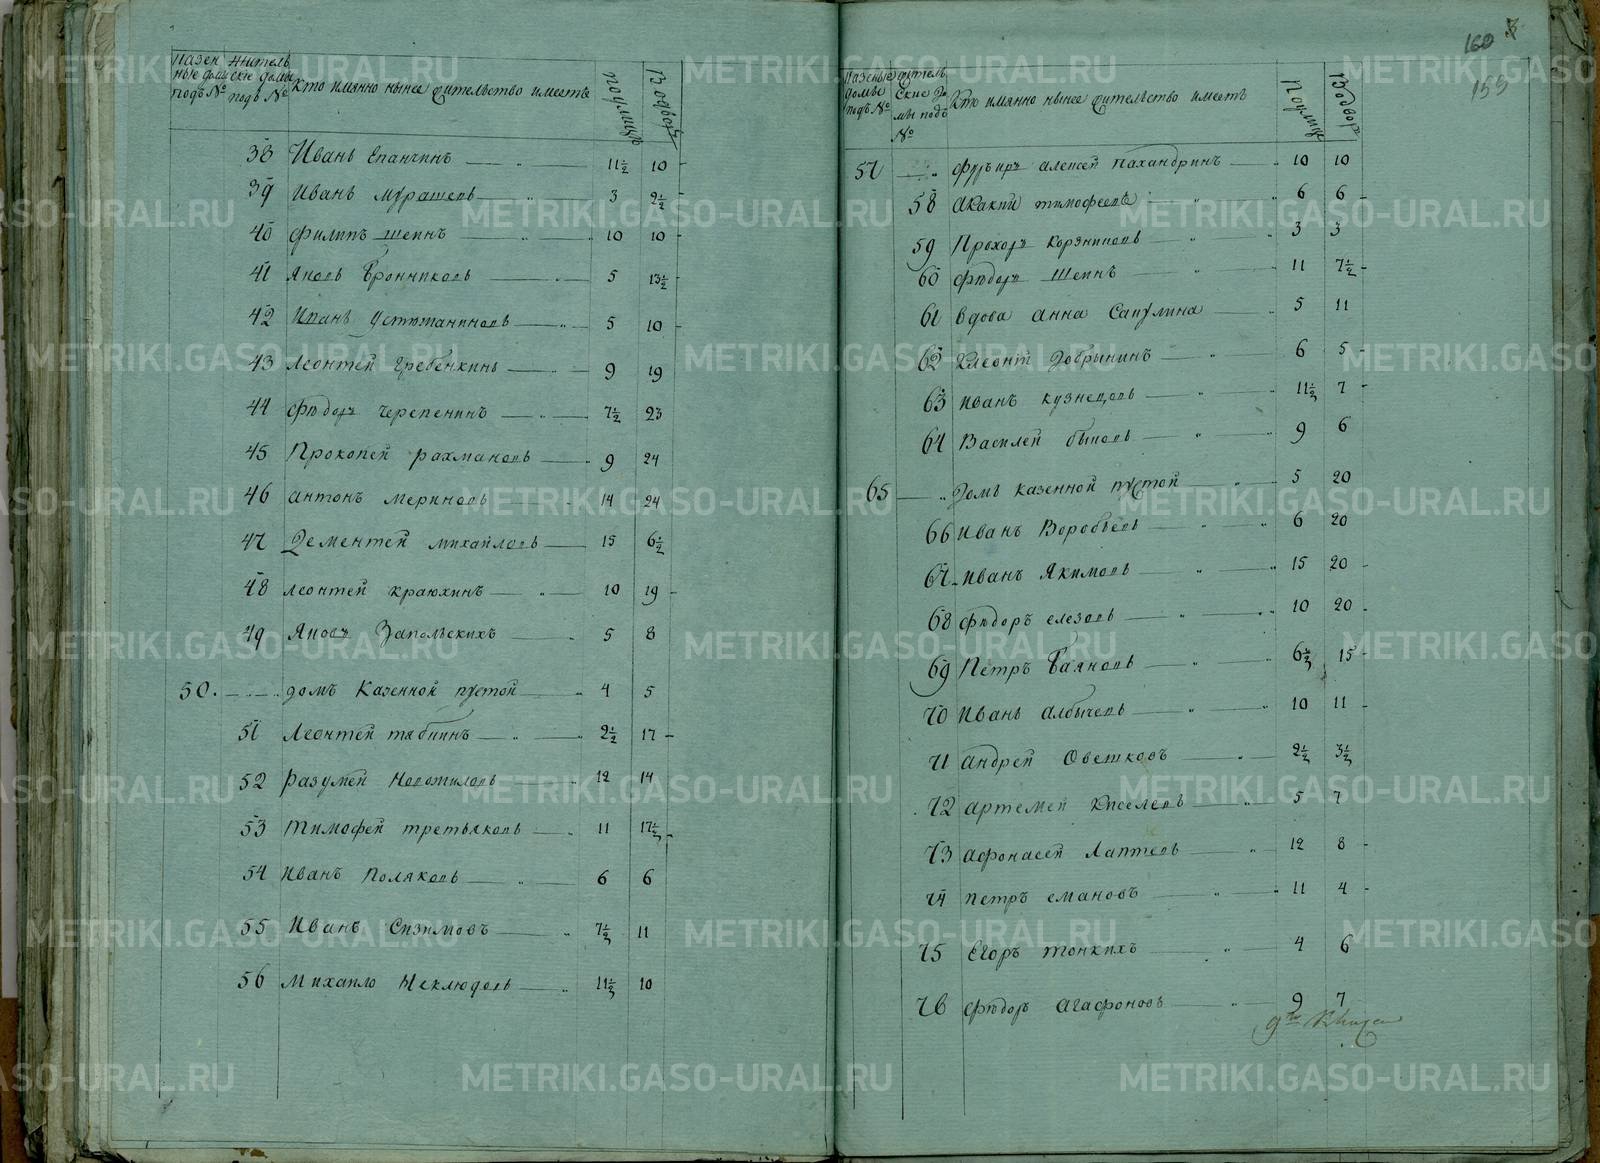 160
155
Казен
ные домы
подъ №
Житель
ские домы
подъ №
Кто имянно ныне жительство имеетъ
По улице
В одворъ
38 Иванъ Епанчинъ 11½ 10
39 Иванъ Мурашевъ 3 2½
40 Филипъ Шеинъ 10 10
41 Яковъ Бронниковъ 5 13½
42 Иванъ Устюжаниновъ 5 10
43 Леонтей Гребенкинъ 9 19
44 Фѣдоръ Черепенинъ 7½ 23
45 Прокопей Рахмановъ 9 24
46 Антонъ Мериновъ 14 24
47 Дементей Михайловъ 15 6½
48 Леонтей Краюхинъ 10 19
49 Яковъ Запольскихъ 5 8
50. домъ Казенной пустой 4 5
51 Леонтей 2½ 17
52 Разумей Новожиловъ 12 14
53 Тимофей Третьяковъ 11 17½
54 Иванъ Поляковъ 6 6
55 Иванъ Сизимовъ 7½ 11
56 Михаило Неклюдовъ 11½ 10
Казеные
домы
подъ №
житель
ские до
мы подъ
№
Кто имянно ныне жительство имеетъ
По улице
В одворъ
57 Фурьиръ Алексей Пахандринъ 10 10
58 Акакий Тимофеевъ 6 6
59 Прохоръ Корзниковъ 3 3
60 Фѣдоръ Шеинъ 11 7½
61 вдова Анна Сапулина 5 11
62 Клеонт Добрынинъ 6 5
63 Иванъ Кузнецовъ 11½ 7
64 Василей Быковъ 9 6
65 Домъ казенной пустой 5 20
66 Иванъ Воробьевъ 6 20
67 Иванъ Якимовъ 15 20
68 Фѣдоръ Елезовъ 10 20
69 Петръ Баяновъ 6½ 15
70 Иванъ Албычевъ 10 11
71 Андрей Оветковъ 2½ 3½
72 Артемей Киселевъ 5 7
73 Афонасей Лаптевъ 12 8
74 Петръ Емановъ 11 4
75 Егоръ Тонкихъ 4 6
76 Фѣдоръ Агафоновъ 9 7
METRIKI.GASO-URAL.RU